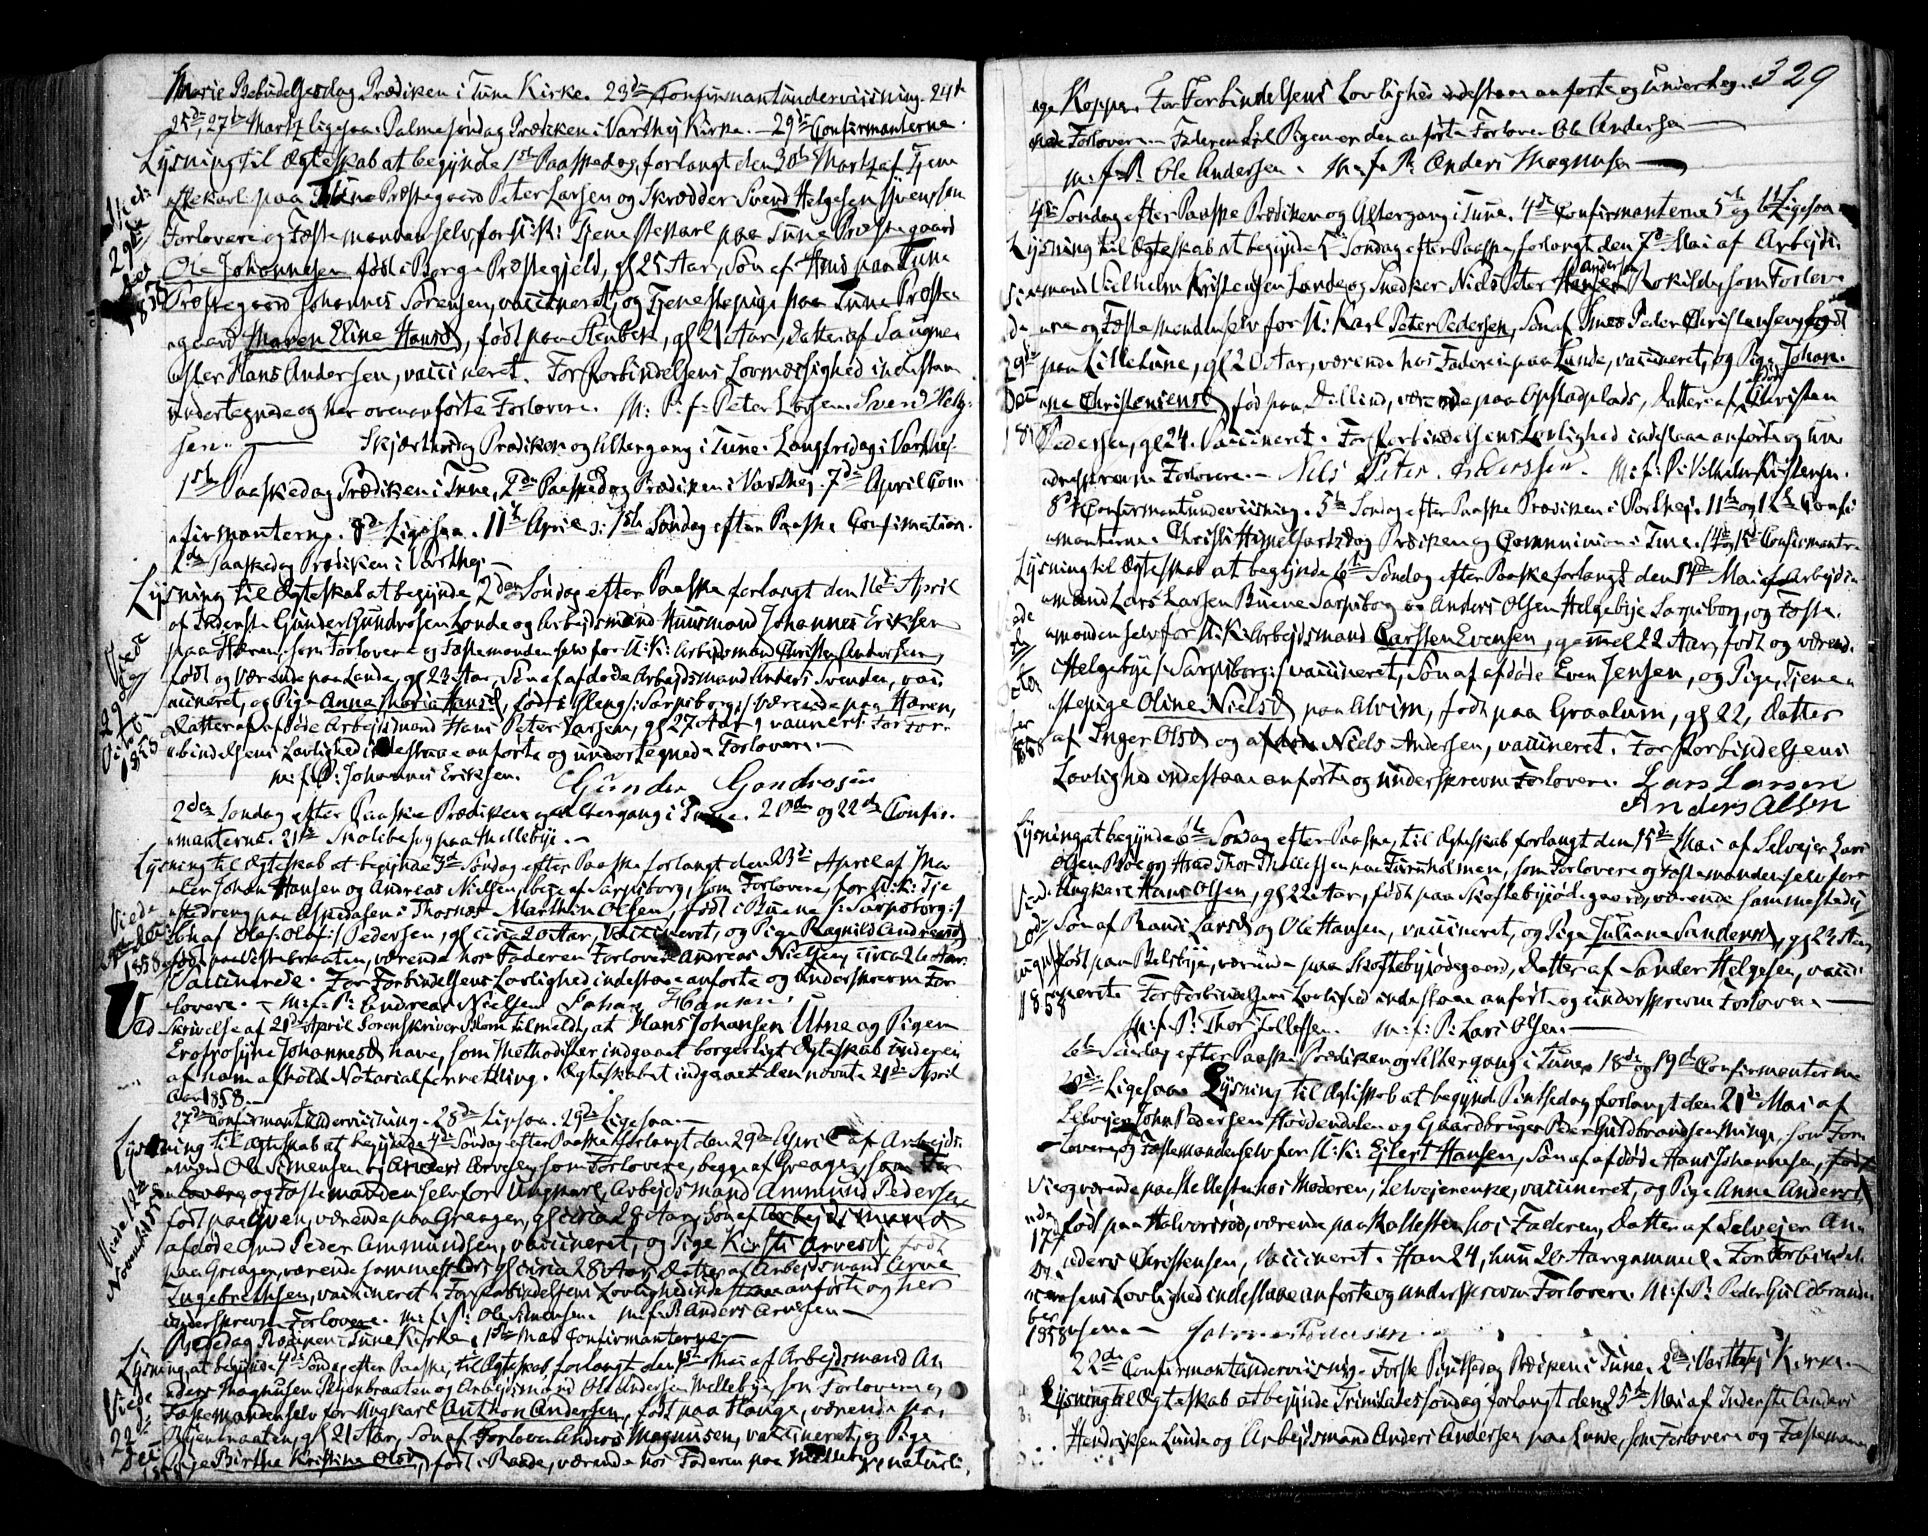 Marie Bebudelsesdag Prædiken i Tune Kirke. 23de Confirmantunderviisning. 24de
25de, 27de Martz ligesaa. Palmesøndag Prædiken i Varthej Kirke. 29de Confirmanterne.
Lysning til Ægteskab at begynde 1ste Paaskedag, forlangt den 30te Martz af Tjene
stekarl paa Tune Præstegaard Peter Larsen og Skrædder Svend Helgesen
Forlovere og Fæstemanden selv, for U: K: Tjenestekarl paa Tune Præstegaard
Ole Johannesen født i Borge Præstegjeld, gl 25 Aar, Søn af paa Tune
Præstegaard Johannes Sørensen, vaccineret, og Tjenestepige paa Tune Præste
gaard Maren Eline Hansd, født paa Stenbek, gl 21 Aar, Datter af Saugme
ster Hans Andersen, vaccineret. For Forbindelsens Lovmæssighed indestaa
undertegnede og her ovenanførte Forlovere. M: P: f: Peter Larsen Svend Helge
sen. Skjærtorsdag Prædiken og Altergang i Tune. Langfredag i Varthej.
1ste Paaskedag Prædiken i Tune, 2den Paaskedag Prædiken i Varthej. 7de April Con
firmanterne. 8de Ligesaa. 11te April 1ste Søndag efter Paaske Confirmation.
2den Paaskedag Prædiken i Varthej.
Lysning til Ægteskab at begynde 2den Søndag efter Paaske forlangt den 16de April
af Inderste Gunder Gundrosen Lande og Arbejdsmand Huusmand Johannes Eriksen
paa Hæren, som Forlovere og Fæstemanden selv for U: K: Arbejdsmand Christen Andersen,
født og værende paa Lande, gl 23 Aar, Søn af afdøde Arbejdsmand Anders Svendsen, vac
cineret, og Pige Anne Maria Hansd, født i Gleng /: Sarpsborg :/ værende paa Hæren,
Datter af afdøde Arbejdsmand Hans Peter Larsen, gl 27 Aar, vaccineret. For For
bindelsens Lovlighed indestaae anførte og undertegnede Forlovere.
M: f: P: Johannes Eriksen. Gunder Gondrosen
2den Søndag efter Paaske Prædiken og Altergang i Tune. 21de og 22de Confir
manterne. 21de Skolebesøg paa Mellebye.
Lysning til Ægteskab at begynde 3de Søndag efter Paaske forlangt den 23de April af Ma
ler Johan Hansen og Andreas Nielsen, begge af Sarpsborg, som Forlovere, for U: K: Tje
nestedreng paa Aspedasen i Thosnæs Marthin Olsen, født i Buene /: Sarpsborg :/
Søn af Olaf Pedersen, gl circa 20 Aar, Vaccineret, og Pige Ragnild Andreasd
født paa Vestenbraaten, værende hos Faderen Forlovere Andreas Nielsen, circa 26 Aar.
Vaccinerede. For Forbindelsens Lovlighed indestaae anførte og underskrevne For
lovere. M: f: P: Andreas Nielsen Johan Hansen.
Ved Skrivelse af 21de April Sorenskriver Blom tilmeldt, at Hans Johansen Utne og Pigen
Erofrosyne Johannesd have, som Methodister indgaaet borgerligt Ægteskab under en
af ham afholdt Notarialforretning. Ægteskabet indgaaet den nævnte 21de April
Aar 1858.
27de Confirmantundervisning. 28de Ligesaa. 29de Ligesaa.
Lysning til Ægteskab at begynde 4de Søndag efter Paaske forlangt den 29de April af Arbejds
mand Ole Simensen og Anders Arvesen, som Forlovere, begge af Greager, som For
lovere og Fæstemanden selv for Ungkarl, Arbejdsmand Ammund Pedersen
født paa Gven, værende paa Greager, gl circa 28 Aar, Søn af Arbejdsmand
afdøde Peder Ammundsen, vaccineret, og Pige Kirsti Arvesd, født
paa Greager, værende sammesteds gl circa 28 Aar, Datter af Arbejdsmand Arve
Ingebrethsen, vaccineret. For Forbindelsens Lovlighed indestaae anførte og her
underskrevne Forlovere. M: f: P: Ole Simensen. M: f: P: Anders Arvesen
Bededag Prædiken i Tune Kirke. 1ste Mai Confirmanterne.
Lysning, at begynde 4de Søndag efter Paaske, til Ægteskab forlangt den 1ste Mai af Arbejdsmand An
ders Magnusen Stenbraaten og Arbejdsmand Ole Andersen Mellebye, som Forlovere og
Fæstemanden selv for Ungkarl Anthon Andersen, født paa Hauge, værende paa
Stenbraaten, gl 21 Aar, Søn af Forlover Anders Magnusen, vaccineret, og Pige
Birthe Kristine Olsd, født i Raade, værende hos Faderen paa Mellebye, naturli
Viede
29de
1858
Viede
29de
Octb
1858
Viede
1858
Viede 12te
Novemb 1858
Viede
22de
1858
329
age Kopper. For Forbindelsens Lovlighed indestaae anførte og underteg
nede Forlovere. Faderen til Pigen er den anførte Forlover Ole Andersen
M: f: P: Ole Andersen. M: f: P: Anders Magnusen
4de Søndag efter Paaske Prædiken og Altergang i Tune. 4de Confirmanterne 5te og 6te Ligesaa
Lysning til Ægteskab at begynde 5te Søndag efter Paaske, forlangt den 7de Mai af Arbejds
mand Vilhelm Kristensen Lande og Snedker Niels Peter Andersen Rokilde, som Forlov
ere og Fæstemanden selv for U: Karl Peter Pedersen, Søn af Peder Christensen, født
paa Lille Tune, gl 20 Aar, værende hos Faderen paa Lunde, vaccineret, og Pige Johan
ne Christensd, født paa Dillind, værende paa Opstadplads, Datter af afdøde Christen
Pedersen, gl 24. Vaccineret. For Forbindelsens Lovlighed indestaae anførte og un
derskrevne Forlovere. Niels Peter Anderssen. M: f: P: Vilhelm Kristensen.
8de Confirmantundervisning. 5te Søndag efter Paaske Prædiken i Varthej. 11te og 12te Confir
manterne. Christi Himmelfartsdag Prædiken og Communion i Tune. 14de og 15de Confirmantr.
Lysning til Ægteskab at begynde 6te Søndag efter Paaske forlangt den 14de Mai af Arbejds
mand Lars Larsen Buene Sarpsborg og Anders Olsen Helgebye Sarpsborg, og Fæste
manden selv for U: K: Arbejdsmand Carsten Evensen, gammel 22 Aar, født og værend.
i Helgebye /: Sarpsborg :/ vaccineret, Søn af afdøde Even Jensen, og Pige, Tjene
stepige Oline Nielsd paa Alvim, født paa Graalum, gl 22, Datter
af Inger Olsd og Niels Andersen, vaccineret. For Forbindelsens
Lovlighed indestaae anførte og underskrevne Forlovere. Lars Larsen
Anders Olsen
Lysning at begynde 6te Søndag efter Paaske, til Ægteskab forlangt den 15de Mai af Selvejer Lars
Olsen Boe og Thor Thollefsen paa Tuneholmen, som Forlovere og Fæstemanden selv for
Ungkarl Hans Olsen, gl 22 Aar, født paa Skoftebyødegaard, værende sammesteds,
Søn af Randi Larsd og Ole Hansen, vaccineret, og Pige Juliane Sandersd, gl 23 Aar,
født paa Melsbye, værende paa Skoftebyødegaard, Datter af Sander Helgesen, vacci
neret. For Forbindelsens Lovlighed indestaae anførte og underskrevne Forlovere
M: f: P: Thor Tollefsen. M: f: P: Lars Olsen
6te Søndag efter Paaske Prædiken og Altergang i Tune. 18de og 19de Confirmanterne
20de Ligesaa. Lysning til Ægteskab at begynde Pintsedag forlangt den 21de Mai af
Selvejer John Pedersen Høidendalen og Gaardbruger Peder Guldbrandsen Minge, som For
lovere, og Fæstemanden selv for U: K: Eilert Hansen, Søn af afdøde Hans Johannesen, født
og værende paa Skallesten hos Moderen, Selvejerenke, vaccineret, og Pige Anne Andersd,
født paa Halvorsrød, værende paa Skallesten hos Faderen, Datter af Selvejer An
ders Christensen, Vaccineret. Han 24, hun 26 Aar gammel. For Forbindel
sens Lovlighed indestaae anførte og underskrevne Forlovere. M: f: P: Peder Guldbrand
sen. Johannes Pedersen.
22de Confirmantundervisning. Første Pintsedag Prædiken i Tune. 2den i Varthej Kirke
Lysning til Ægteskab at begynde Trinitatissøndag forlangt den 25te Mai af Inderste Anders
Hendriksen Lunde og Arbejdsmand Anders Andersen paa Lunde, som Forlovere og Fæsteman
29de
Dec
1858
20de
August
1858
Vie
17de
No
vem
ber
1858